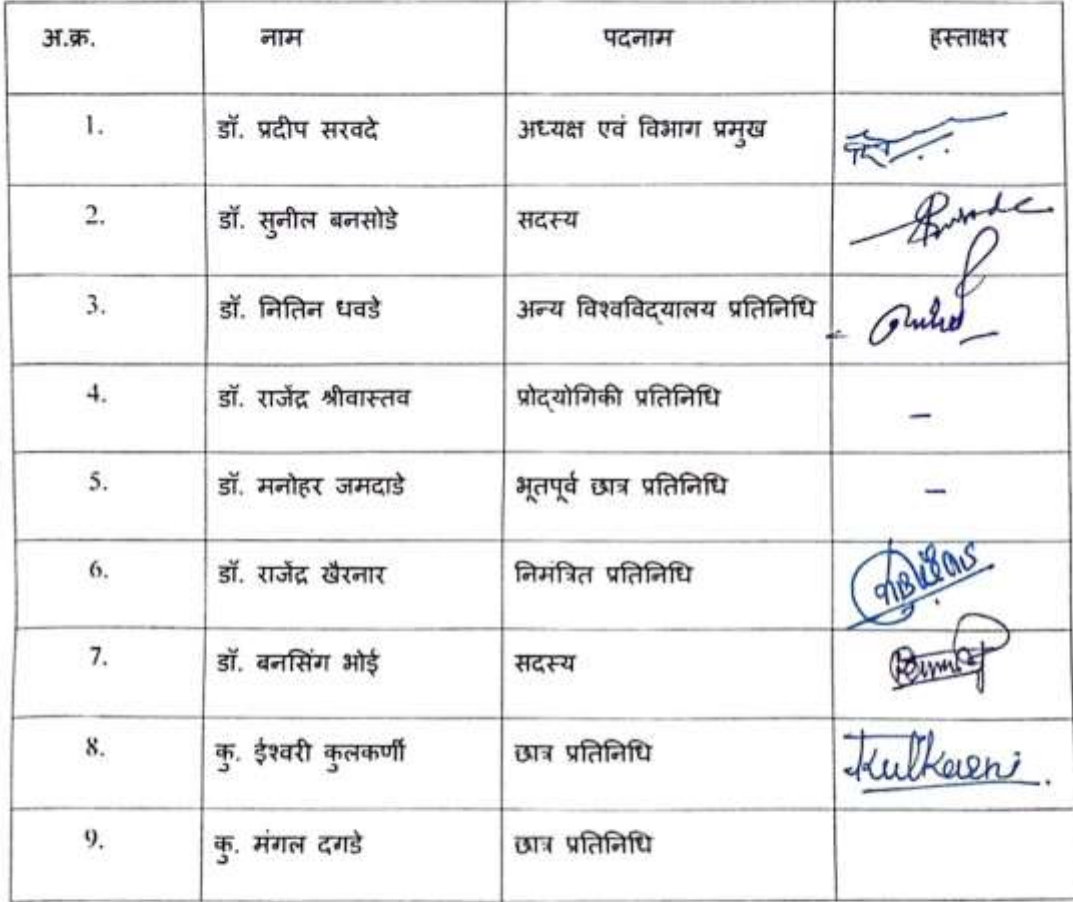 अ.क्र. नाम पदनाम हस्ताक्षर
1. डॉ. प्रदीप सरवदे अध्यक्ष एवं विभाग प्रमुख
2. डॉ. सुनील बनसोडे सदस्य
3. डॉ. नितिन धवडे अन्य विश्वविद्यालय प्रतिनिधि
4. डॉ. राजेंद्र श्रीवास्तव प्रोद्योगिकी प्रतिनिधि –
5. डॉ. मनोहर जमदाडे भूतपूर्व छात्र प्रतिनिधि –
6. डॉ. राजेंद्र खैरनार निमंत्रित प्रतिनिधि
7. डॉ. बनसिंग भोई सदस्य
8. कु. ईश्वरी कुलकर्णी छात्र प्रतिनिधि Kulkarni.
9. कु. मंगल दगडे छात्र प्रतिनिधि